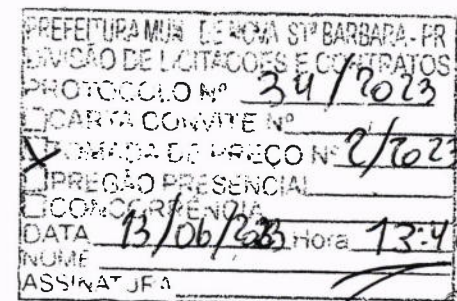 PREFEITURA MUN. DE NOVA STª BARBARA - PR
DIVISÃO DE LICITAÇOES E CONTRATOS
PROTOCOLO Nº 34/2023
CARTA CONVITE Nº /
X TOMADA DE PREÇO Nº 2/2023
PREGÃO PRESENCIAL
CONCORRÊNCIA
DATA 13/06/2023 Hora 13:4
NOME
ASSINATURA